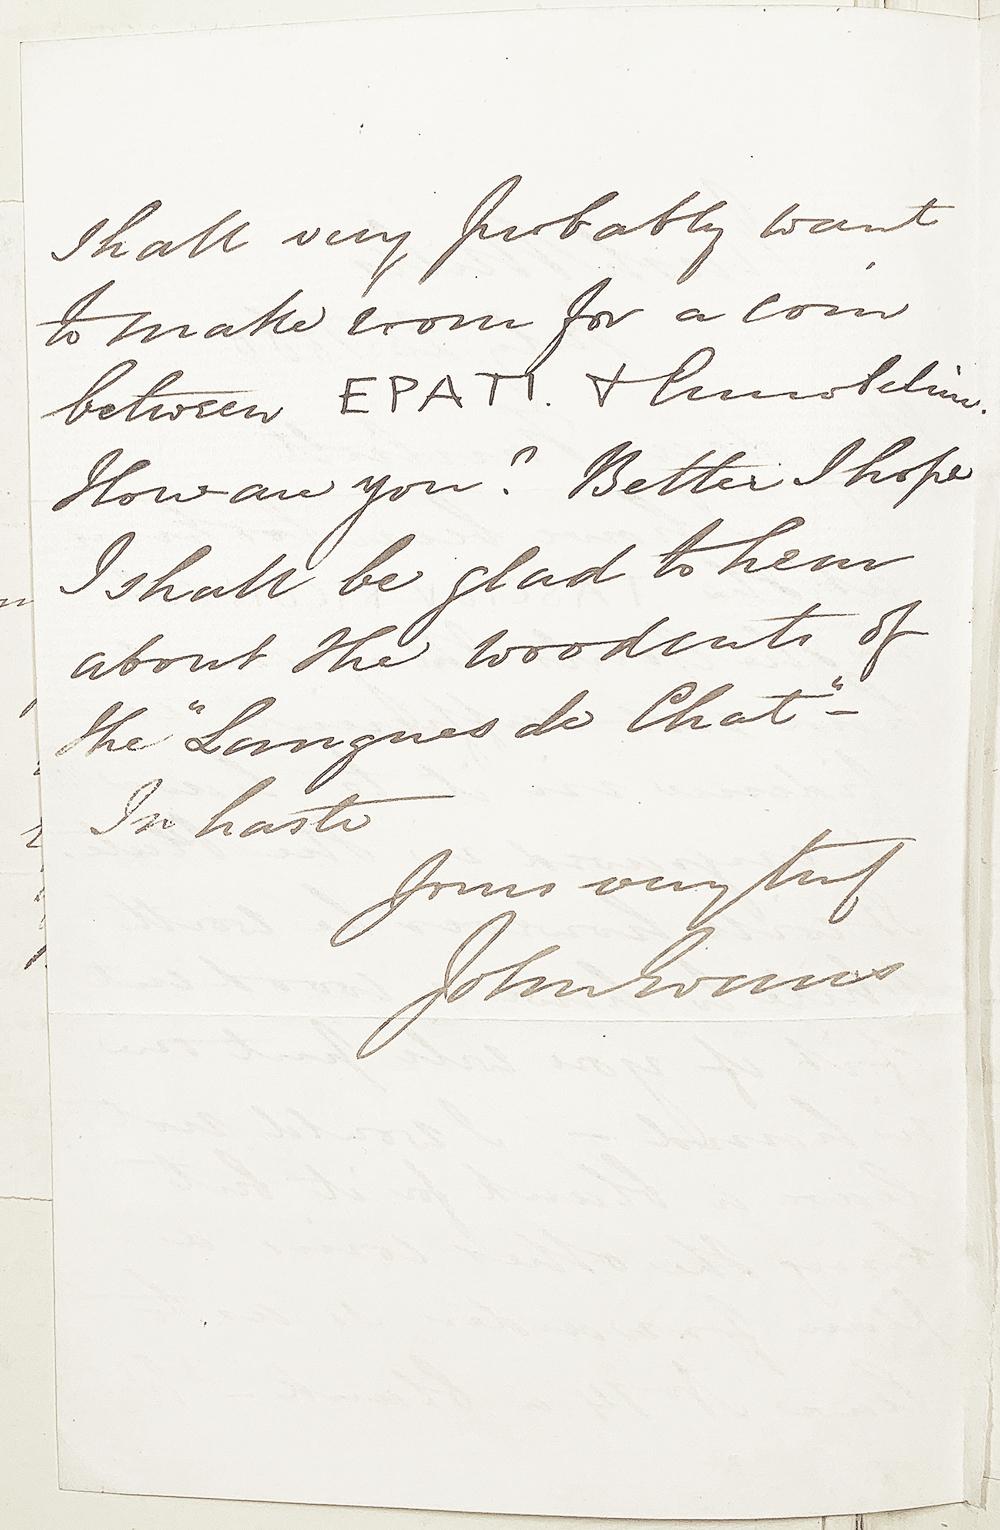 shall very probably want
to make room for a coin
between EPATI. & Cunobeline.
How are you? Better I hope
I shall be glad to hear
about the woodcuts of
the "Langues de Chat" –
In haste
Yours very truly
John Evans